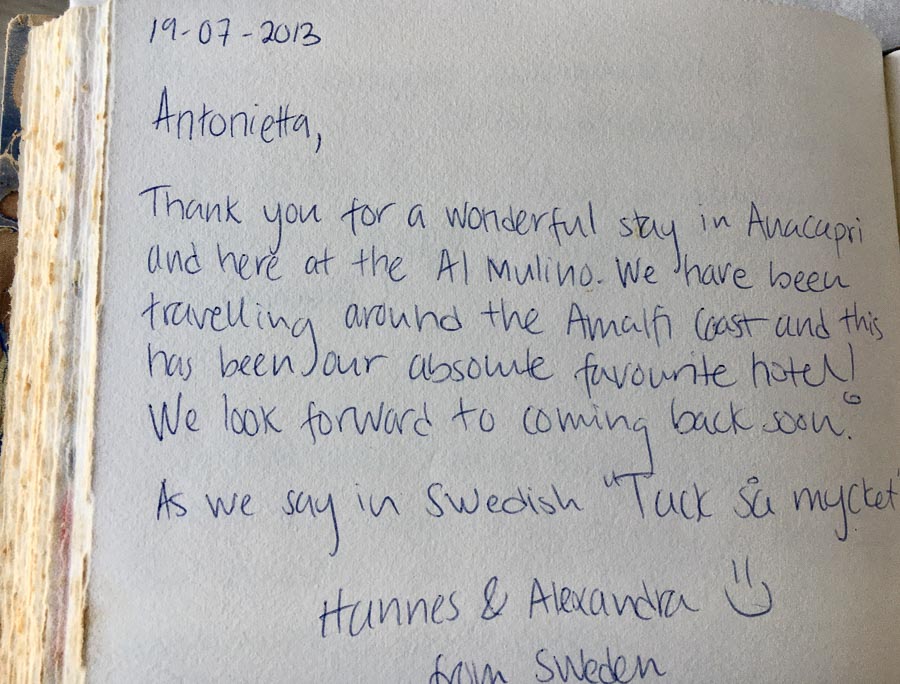 19-07-2013
Antonietta,
Thank you for a wonderful stay in Anacapri
and here at the Al Mulino. We have been
travelling around the Amalfi Coast and this
has been our absolute favourite hotel!
We look forward to coming back soon.
As we say in Swedish "Tack så mycket"
Hannes & Alexandra
from Sweden